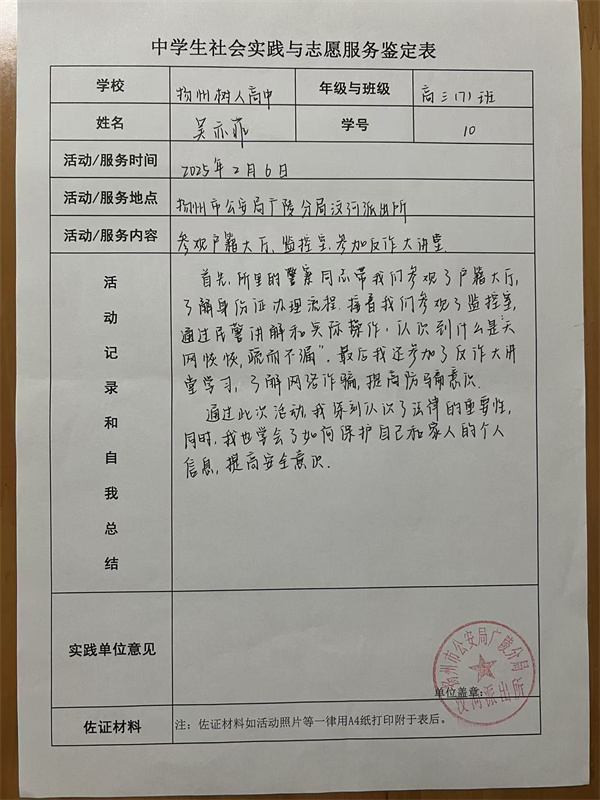 中学生社会实践与志愿服务鉴定表
学校 扬州树人高中 年级与班级 高三(7)班
姓名 吴亦菲 学号 10
活动/服务时间 2025年2月6日
活动/服务地点 扬州市公安局广陵分局汶河派出所
活动/服务内容 参观户籍大厅、监控室,参加反诈大讲堂
活动记录和自我总结
首先,所里的警察同志带我们参观了户籍大厅,
了解身份证办理流程.接着我们参观了监控室,
通过民警讲解和实际操作,认识到什么是"天
网恢恢,疏而不漏".最后我还参加了反诈大讲
堂学习,了解网络诈骗,提高防骗意识.
通过此次活动,我深刻认识了法律的重要性,
同时,我也学会了如何保护自己和家人的个人
信息,提高安全意识.
实践单位意见
扬州市公安局广陵分局
汶河派出所
单位盖章:
佐证材料 注:佐证材料如活动照片等一律用A4纸打印附于表后。